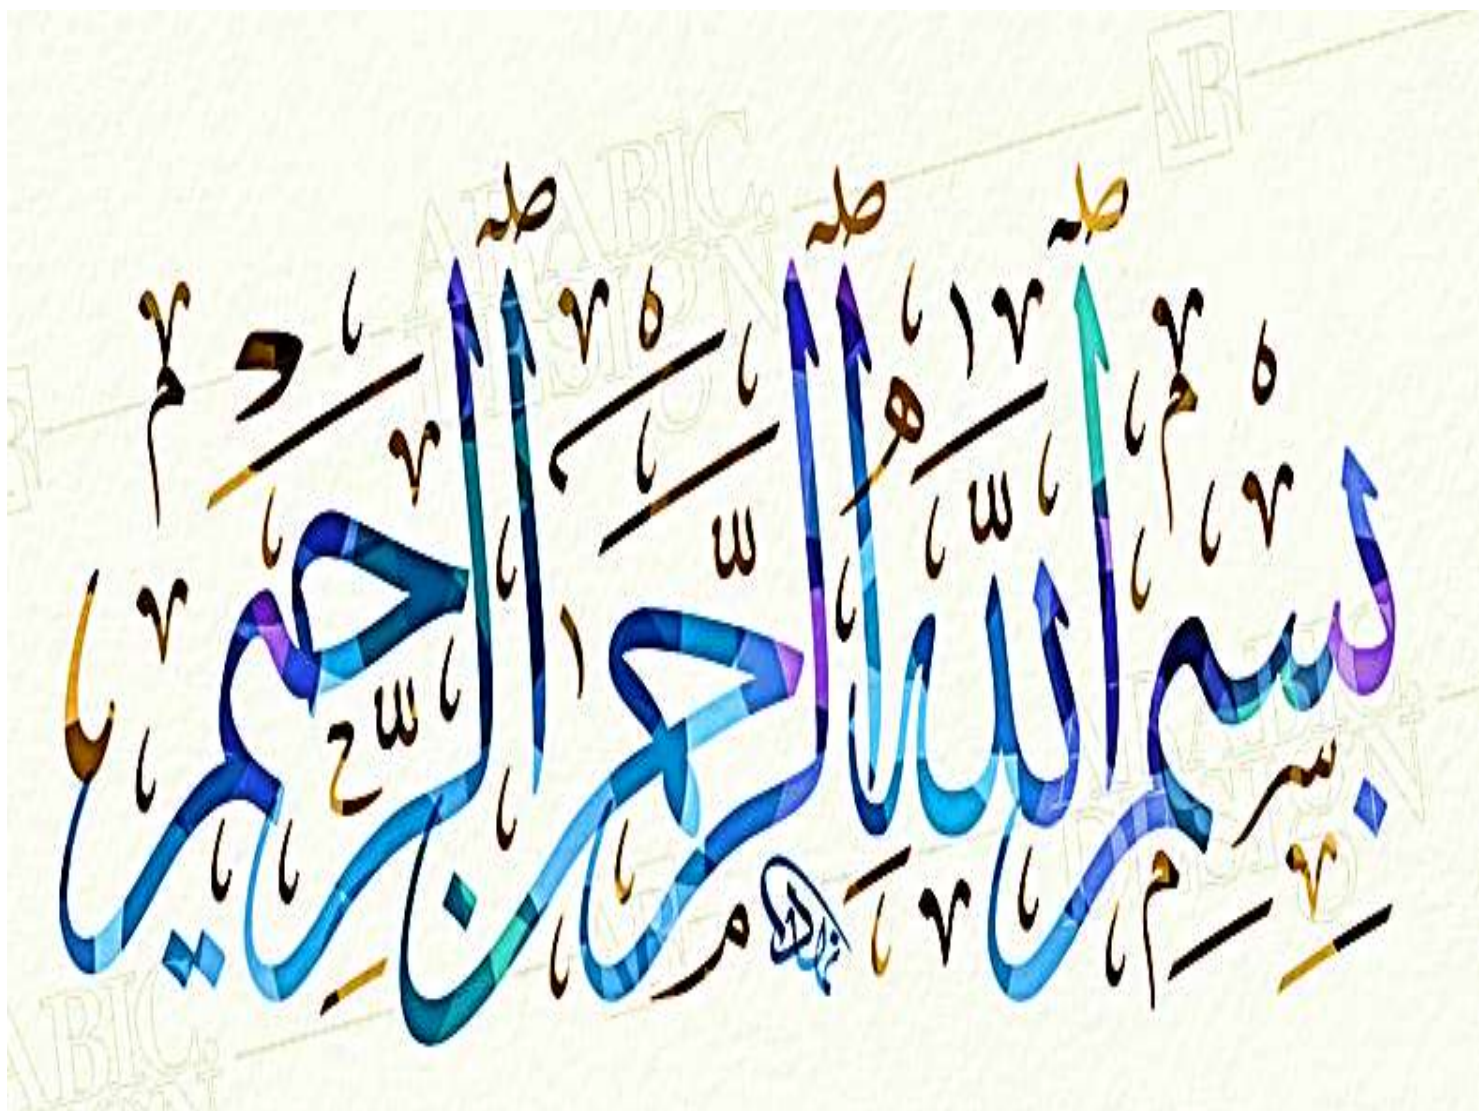 بِسْمِ اللَّهِ الرَّحْمَٰنِ الرَّحِيمِ
ARABIC.